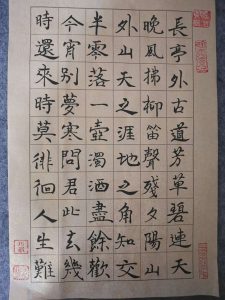 長亭外古道芳草碧連天
晚風拂柳笛聲殘夕陽山
外山天之涯地之角知交
半零落一壺濁酒盡餘歡
今宵別夢寒問君此去幾
時還來時莫徘徊人生難